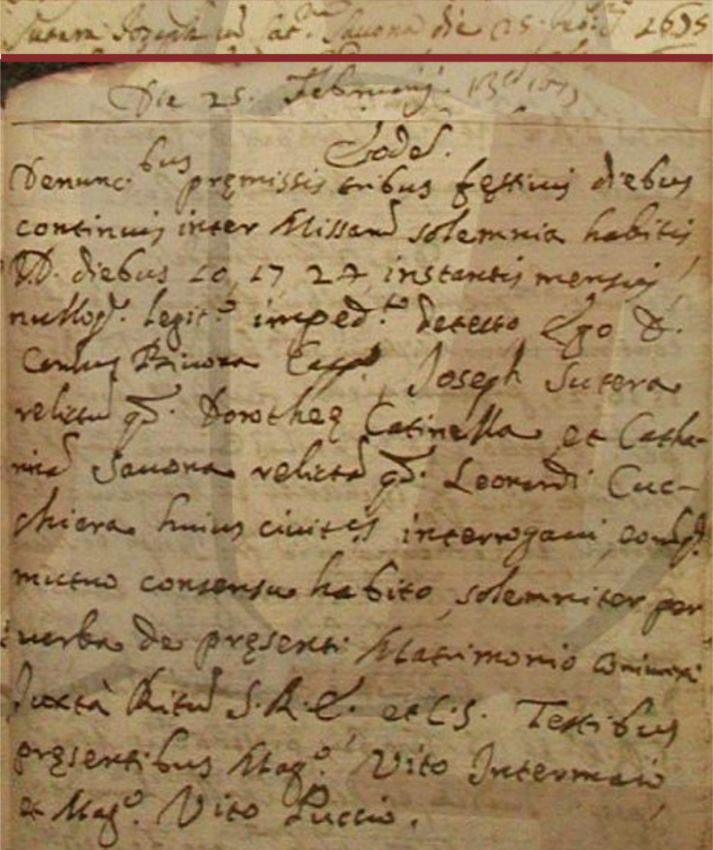 Sutera Joseph cū Cat.na Savona die 25 feb.ij 1695
Die 25. Februarij
Eodē.
Denunc.bus pręmissis tribus festivis diebus
continuis inter Missarū solemnia habitis
V.D. diebus 20, 17 24, instantis mensis
nulloq. legit.o imped.to detecto Ego D.
Carlus Capp. Joseph Sutera
relictū qd. Dorotheę Catinella et Catha-
rinā Savona relictā qd. Leonardi Cuc-
chiera huius civit.s interrogavi, eorūq.
mutuo consensu habito, solemniter per
verba de pręsenti Matrimonio coniunxi
Juxtà Ritū S.R.E. et C.S. Testibus
pręsentibus Mag.o Vito Intermaio
et Mag.o Vito Puccio.